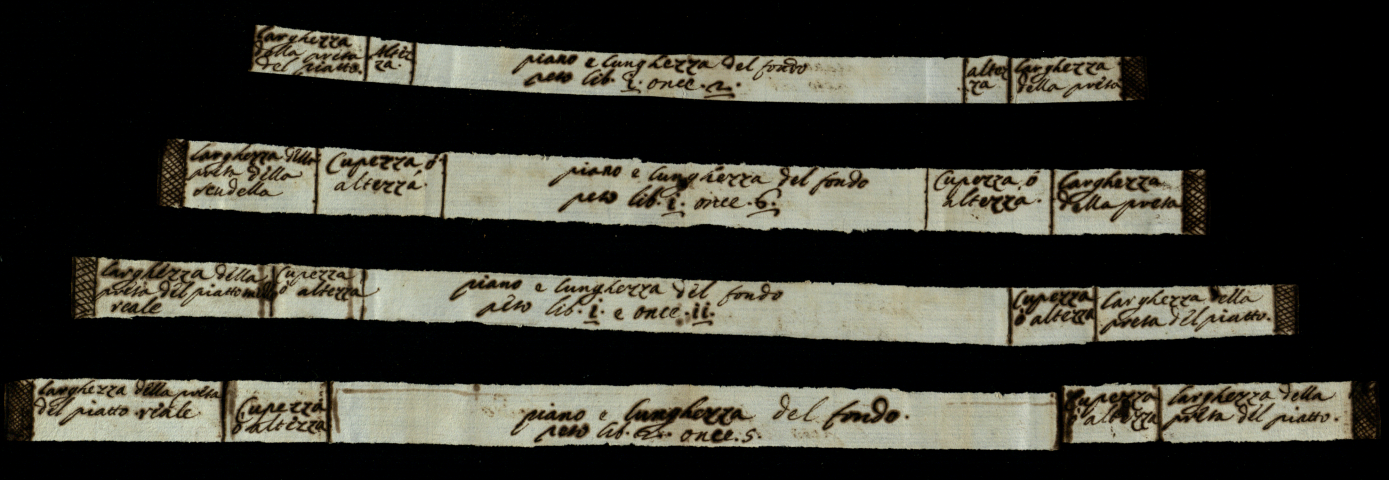 larghezza
della preta
del piatto.
Altez
za.
piano e lunghezza del fondo
peso lib. i. once. 2.
altez
za
larghezza
della preta
larghezza della
preta della
scudella
Cupezza, ó
altezza.
piano e lunghezza del fondo
peso lib. i. once. 6.
Cupezza, ó
altezza.
larghezza
della preta
larghezza della
preta del piatto
reale
Cupezza
ó altezza
piano e lunghezza del fondo
peso lib. i. e once. ii.
Cupezza
ó altezza
larghezza della
preta del piatto.
larghezza della preta
del piatto reale
Cupezza
ó altezza
piano e lunghezza del fondo.
peso lib. 2. once. 5.
Cupezza
ó altezza
larghezza della
preta del piatto.